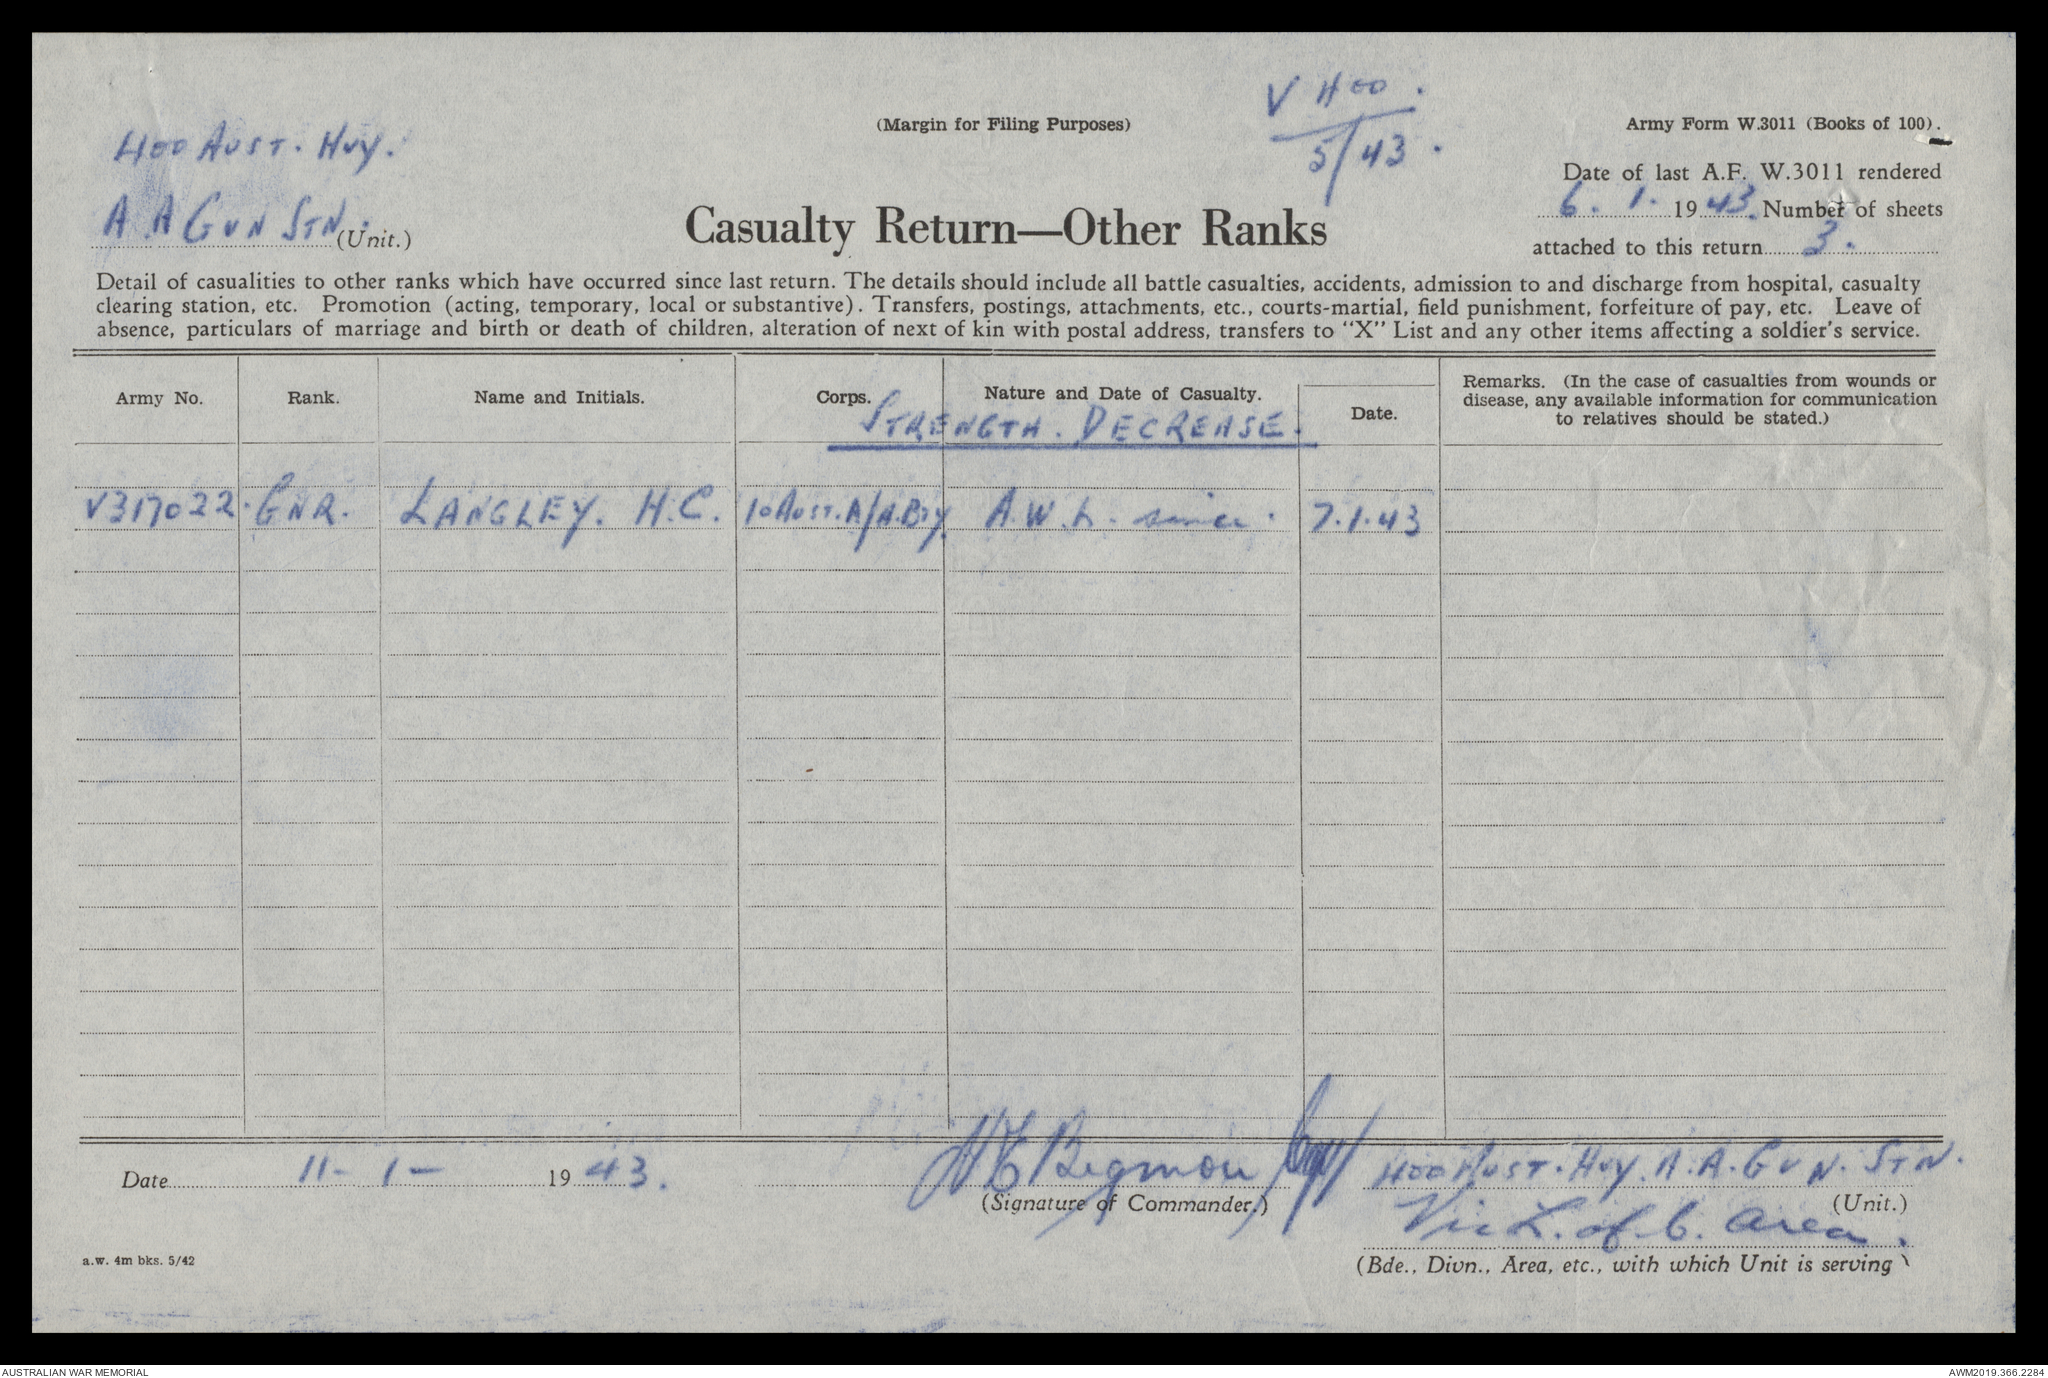 V 400.
5/43.
(Margin for Filing Purposes)
Army Form W.3011 (Books of 100).
400 AUST. HVY.
A A GUN STN. (Unit.)
Casualty Return—Other Ranks
Date of last A.F. W.3011 rendered
6. 1. 1943. Number of sheets
attached to this return 3.
Detail of casualities to other ranks which have occurred since last return. The details should include all battle casualties, accidents, admission to and discharge from hospital, casualty
clearing station, etc. Promotion (acting, temporary, local or substantive). Transfers, postings, attachments, etc., courts-martial, field punishment, forfeiture of pay, etc. Leave of
absence, particulars of marriage and birth or death of children, alteration of next of kin with postal address, transfers to "X" List and any other items affecting a soldier's service.
Army No. Rank. Name and Initials. Corps. Nature and Date of Casualty. Date. Remarks. (In the case of casualties from wounds or
disease, any available information for communication
to relatives should be stated.)
STRENGTH. DECREASE.
V317022. GNR. LANGLEY. H.C. 10 AUST. A/A. BTY. A.W.L. since. 7.1.43
Date 11- 1- 1943.
(Signature of Commander.)
400 AUST. HVY. A.A. GUN. STN.
(Unit.)
Vic L. of C. Area.
(Bde., Divn., Area, etc., with which Unit is serving)
a.w. 4m bks. 5/42
AUSTRALIAN WAR MEMORIAL
AWM2019.366.2284